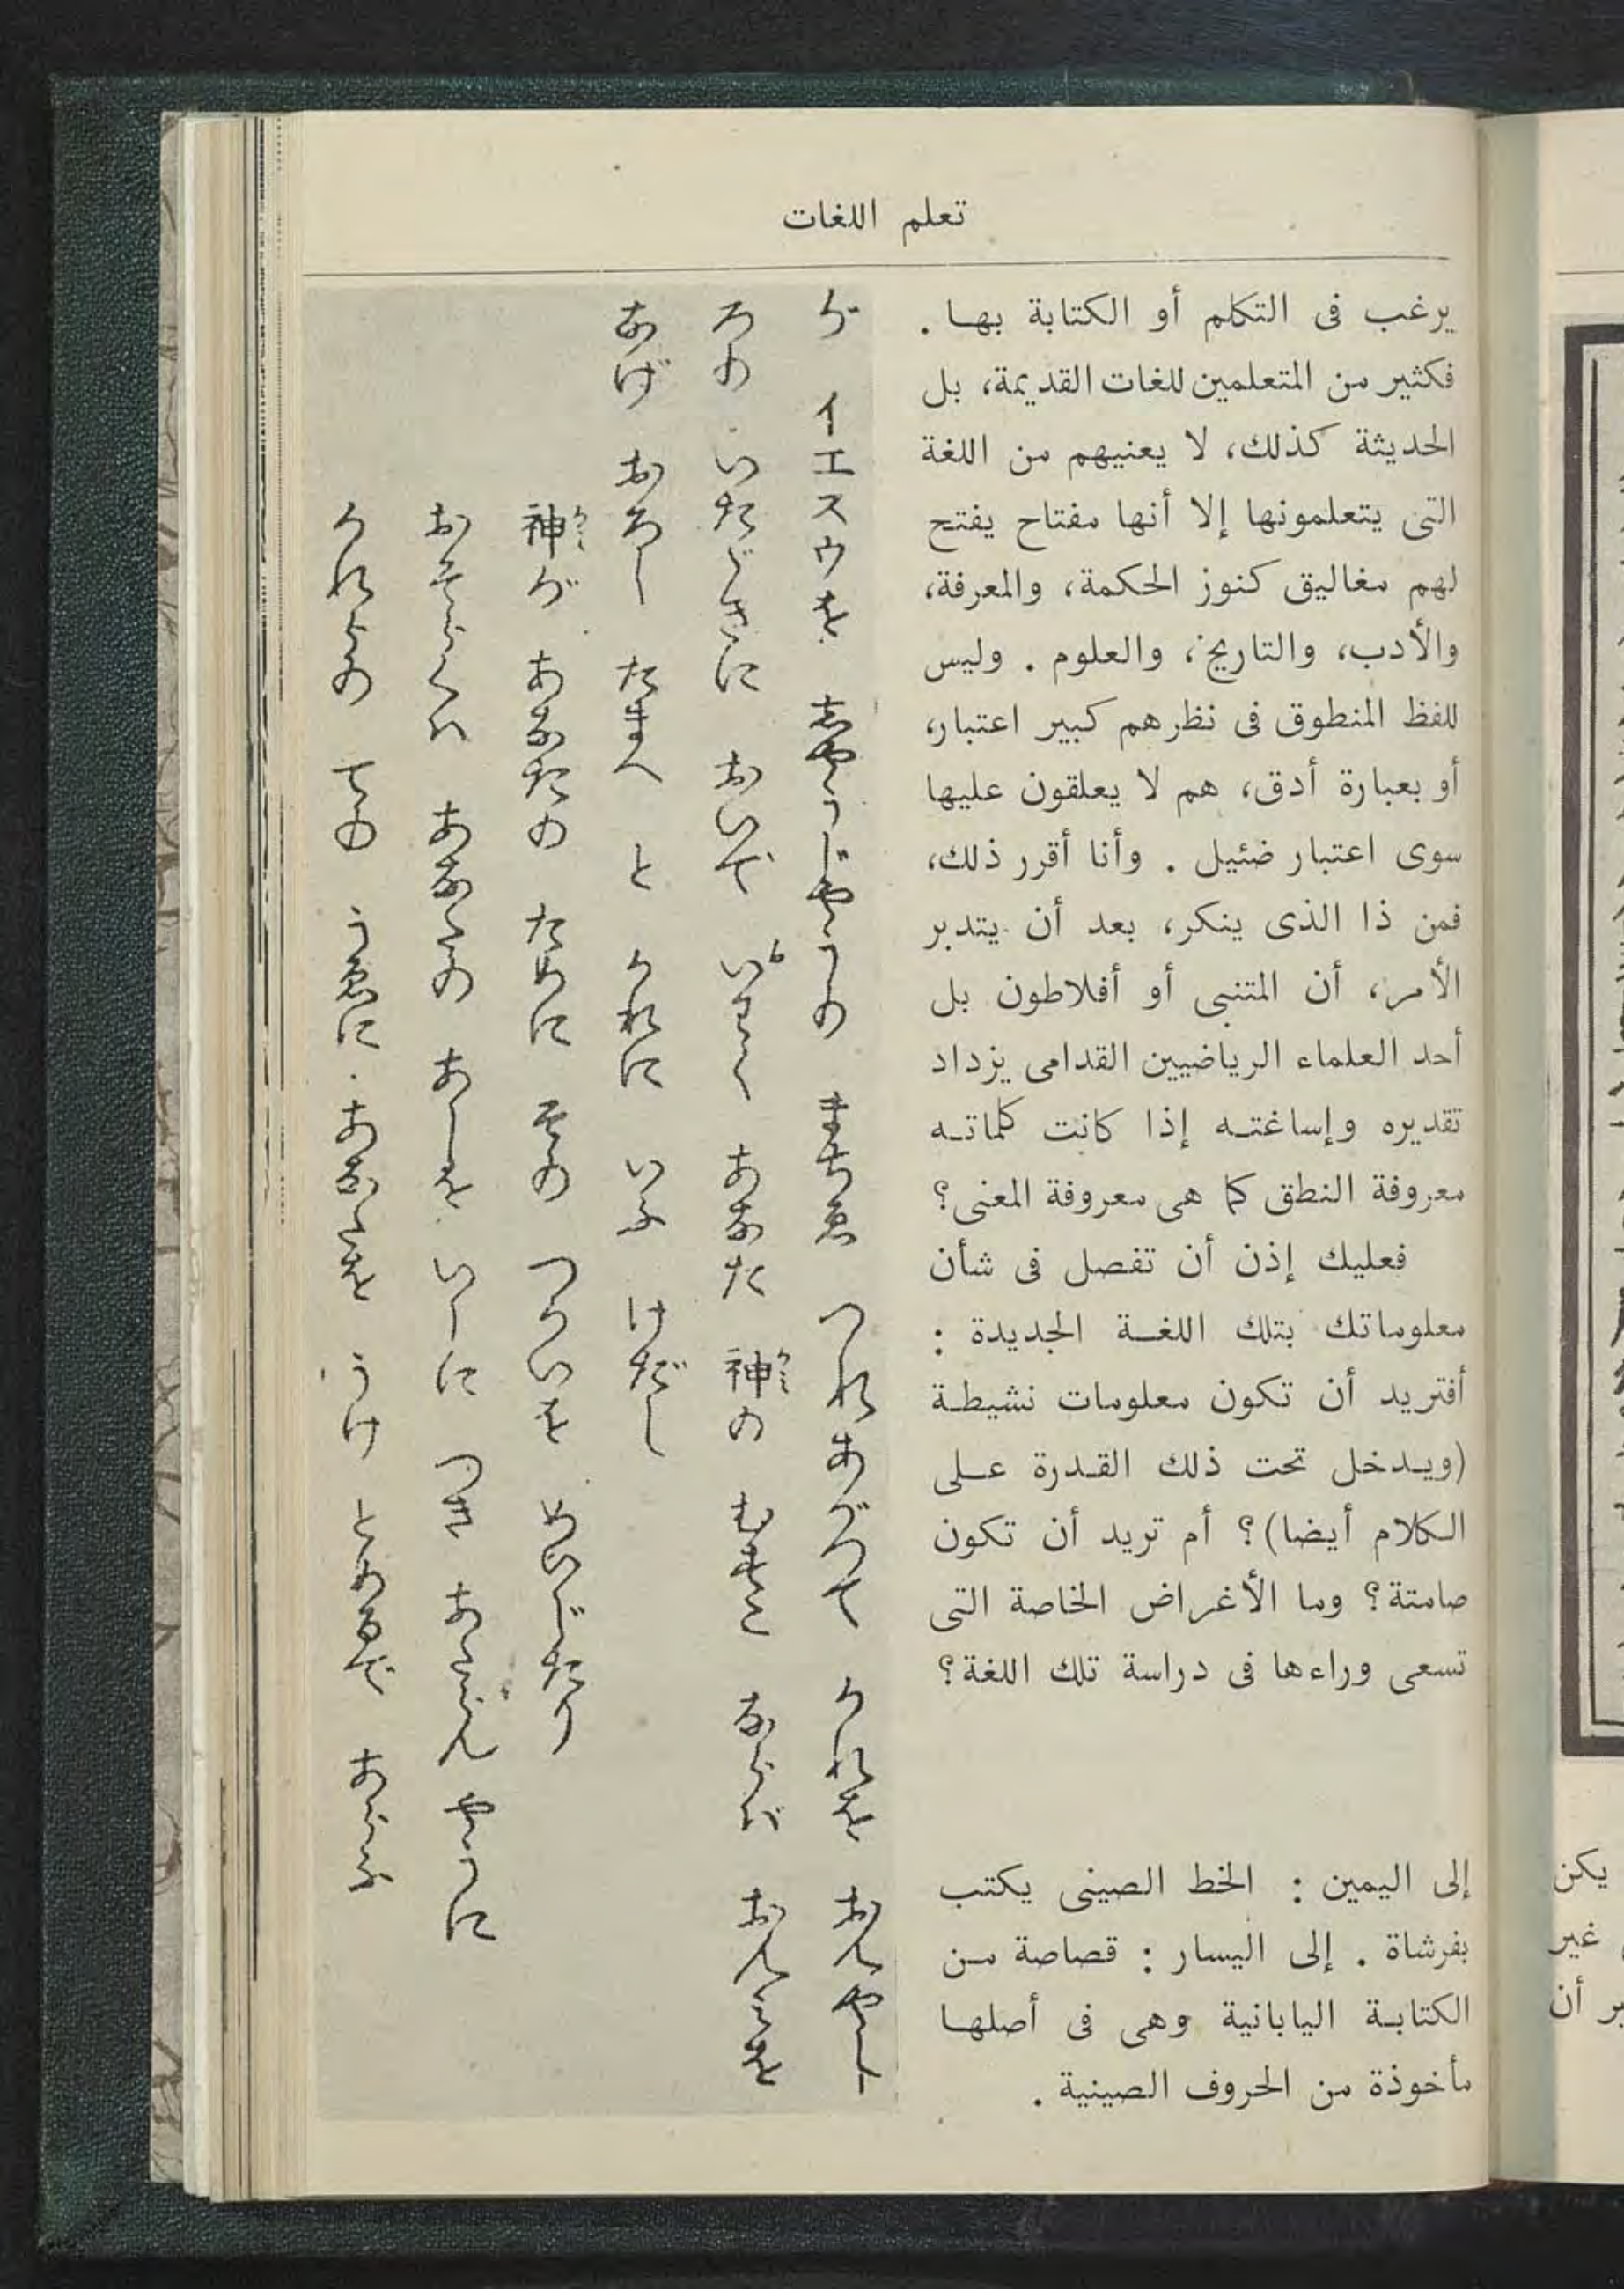 تعلم اللغات
يرغب فى التكلم أو الكتابة بها .
فكثير من المتعلمين للغات القديمة، بل
الحديثة كذلك، لا يعنيهم من اللغة
التى يتعلمونها إلا أنها مفتاح يفتح
لهم مغاليق كنوز الحكمة، والمعرفة،
والأدب، والتاريخ، والعلوم . وليس
للفظ المنطوق فى نظرهم كبير اعتبار،
أو بعبارة أدق، هم لا يعلقون عليها
سوى اعتبار ضئيل . وأنا أقرر ذلك،
فمن ذا الذى ينكر، بعد أن يتدبر
الأمر، أن المتنبى أو أفلاطون بل
أحد العلماء الرياضيين القدامى يزداد
تقديره وإساغته إذا كانت كلماته
معروفة النطق كما هى معروفة المعنى؟
فعليك إذن أن تفصل فى شأن
معلوماتك بتلك اللغة الجديدة :
أفتريد أن تكون معلومات نشيطة
(ويدخل تحت ذلك القدرة على
الكلام أيضا)؟ أم تريد أن تكون
صامتة؟ وما الأغراض الخاصة التى
تسعى وراءها فى دراسة تلك اللغة؟
إلى اليمين : الخط الصينى يكتب
بفرشاة . إلى اليسار : قصاصة من
الكتابة اليابانية وهى فى أصلها
مأخوذة من الحروف الصينية .
が イエスウを しやうじやうの まちゑ つれあがつて かれを おんやしー
ろの いたゞきに おいて いわく あなた 神の むすこ ならバ おんミを
あげ おろし たまへ と かれに いふ けだし
神が あなたの ために その つかいを めいじたり
おそらくハ あなたの あしを いしに つき あたらん やうに
かれらの ての うゑに あなたを うけ とめるで あらふ
يكن
غير
ر أن